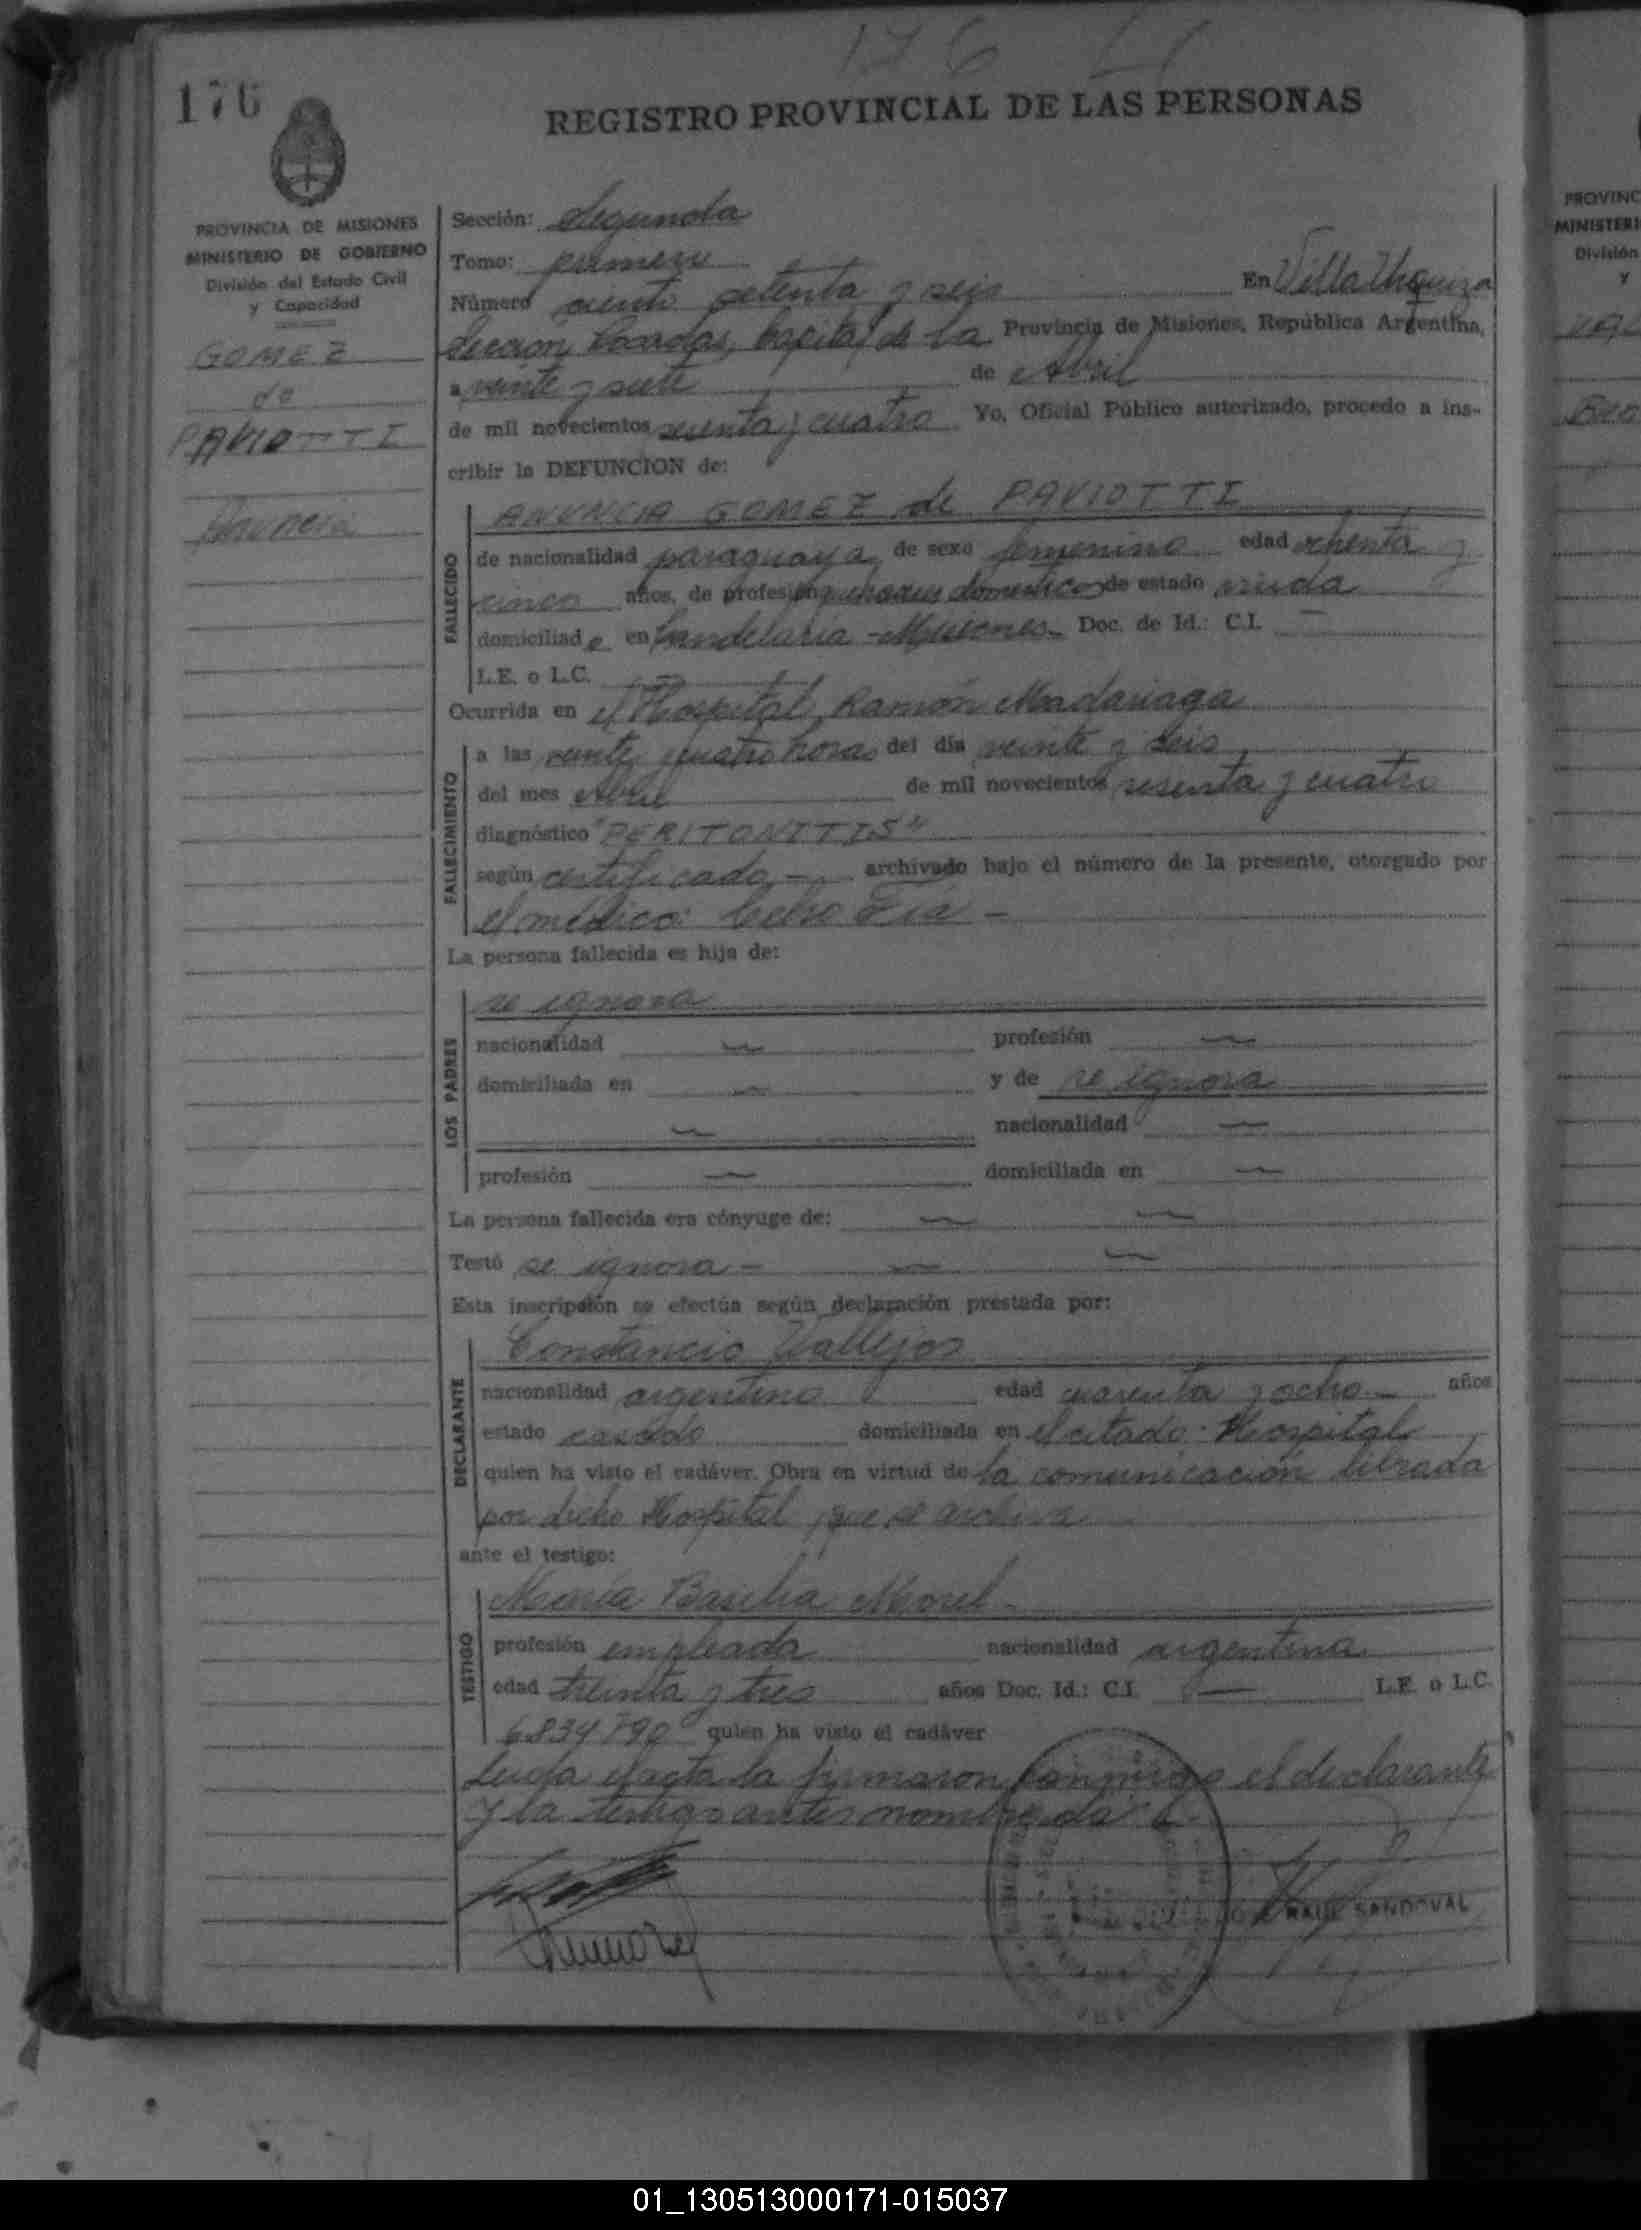 176
176
REGISTRO PROVINCIAL DE LAS PERSONAS
PROVINCIA DE MISIONES
MINISTERIO DE GOBIERNO
División del Estado Civil
y Capacidad
GOMEZ
de
PAVIOTTI
Anuncia
Sección: Segunda
Tomo: primero
Número ciento setenta y seis En Villa Urquiza
Sección Posadas, Capital de la Provincia de Misiones, República Argentina,
a veinte y siete de Abril
de mil novecientos sesenta y cuatro Yo, Oficial Público autorizado, procedo a ins-
cribir la DEFUNCION de:
FALLECIDO
ANUNCIA GOMEZ de PAVIOTTI
de nacionalidad paraguaya de sexo femenino edad ochenta y
cinco años, de profesión quehaceres domesticos de estado viuda
domiciliada en Candelaria - Misiones - Doc. de Id.: C.I. —
L.E. o L.C. —
Ocurrida en el Hospital Ramón Madariaga
FALLECIMIENTO
a las veinte y cuatro horas del día veinte y seis
del mes Abril de mil novecientos sesenta y cuatro
diagnóstico "PERITONITIS"
según certificado - archivado bajo el número de la presente, otorgado por
el médico:
La persona fallecida es hija de:
LOS PADRES
se ignora
nacionalidad — profesión —
domiciliada en — y de se ignora
— nacionalidad —
profesión — domiciliada en —
La persona fallecida era cónyuge de: — —
Testó se ignora - — —
Esta inscripción se efectúa según declaración prestada por:
DECLARANTE
Constancio Vallejos
nacionalidad argentino edad cuarenta y ocho años
estado casado domiciliada en el citado Hospital
quien ha visto el cadáver. Obra en virtud de la comunicación librada
por dicho Hospital que se archiva
ante el testigo:
TESTIGO
María Basilia Morel -
profesión empleada nacionalidad argentina
edad treinta y tres años Doc. Id.: C.I. — L.E. o L.C.
6834790 quien ha visto el cadáver
Leida el acta la firmaron conmigo el declarante
y la testigo antes nombrada
RAUL SANDOVAL
PROVINC
MINISTERI
División
y
01_130513000171-015037